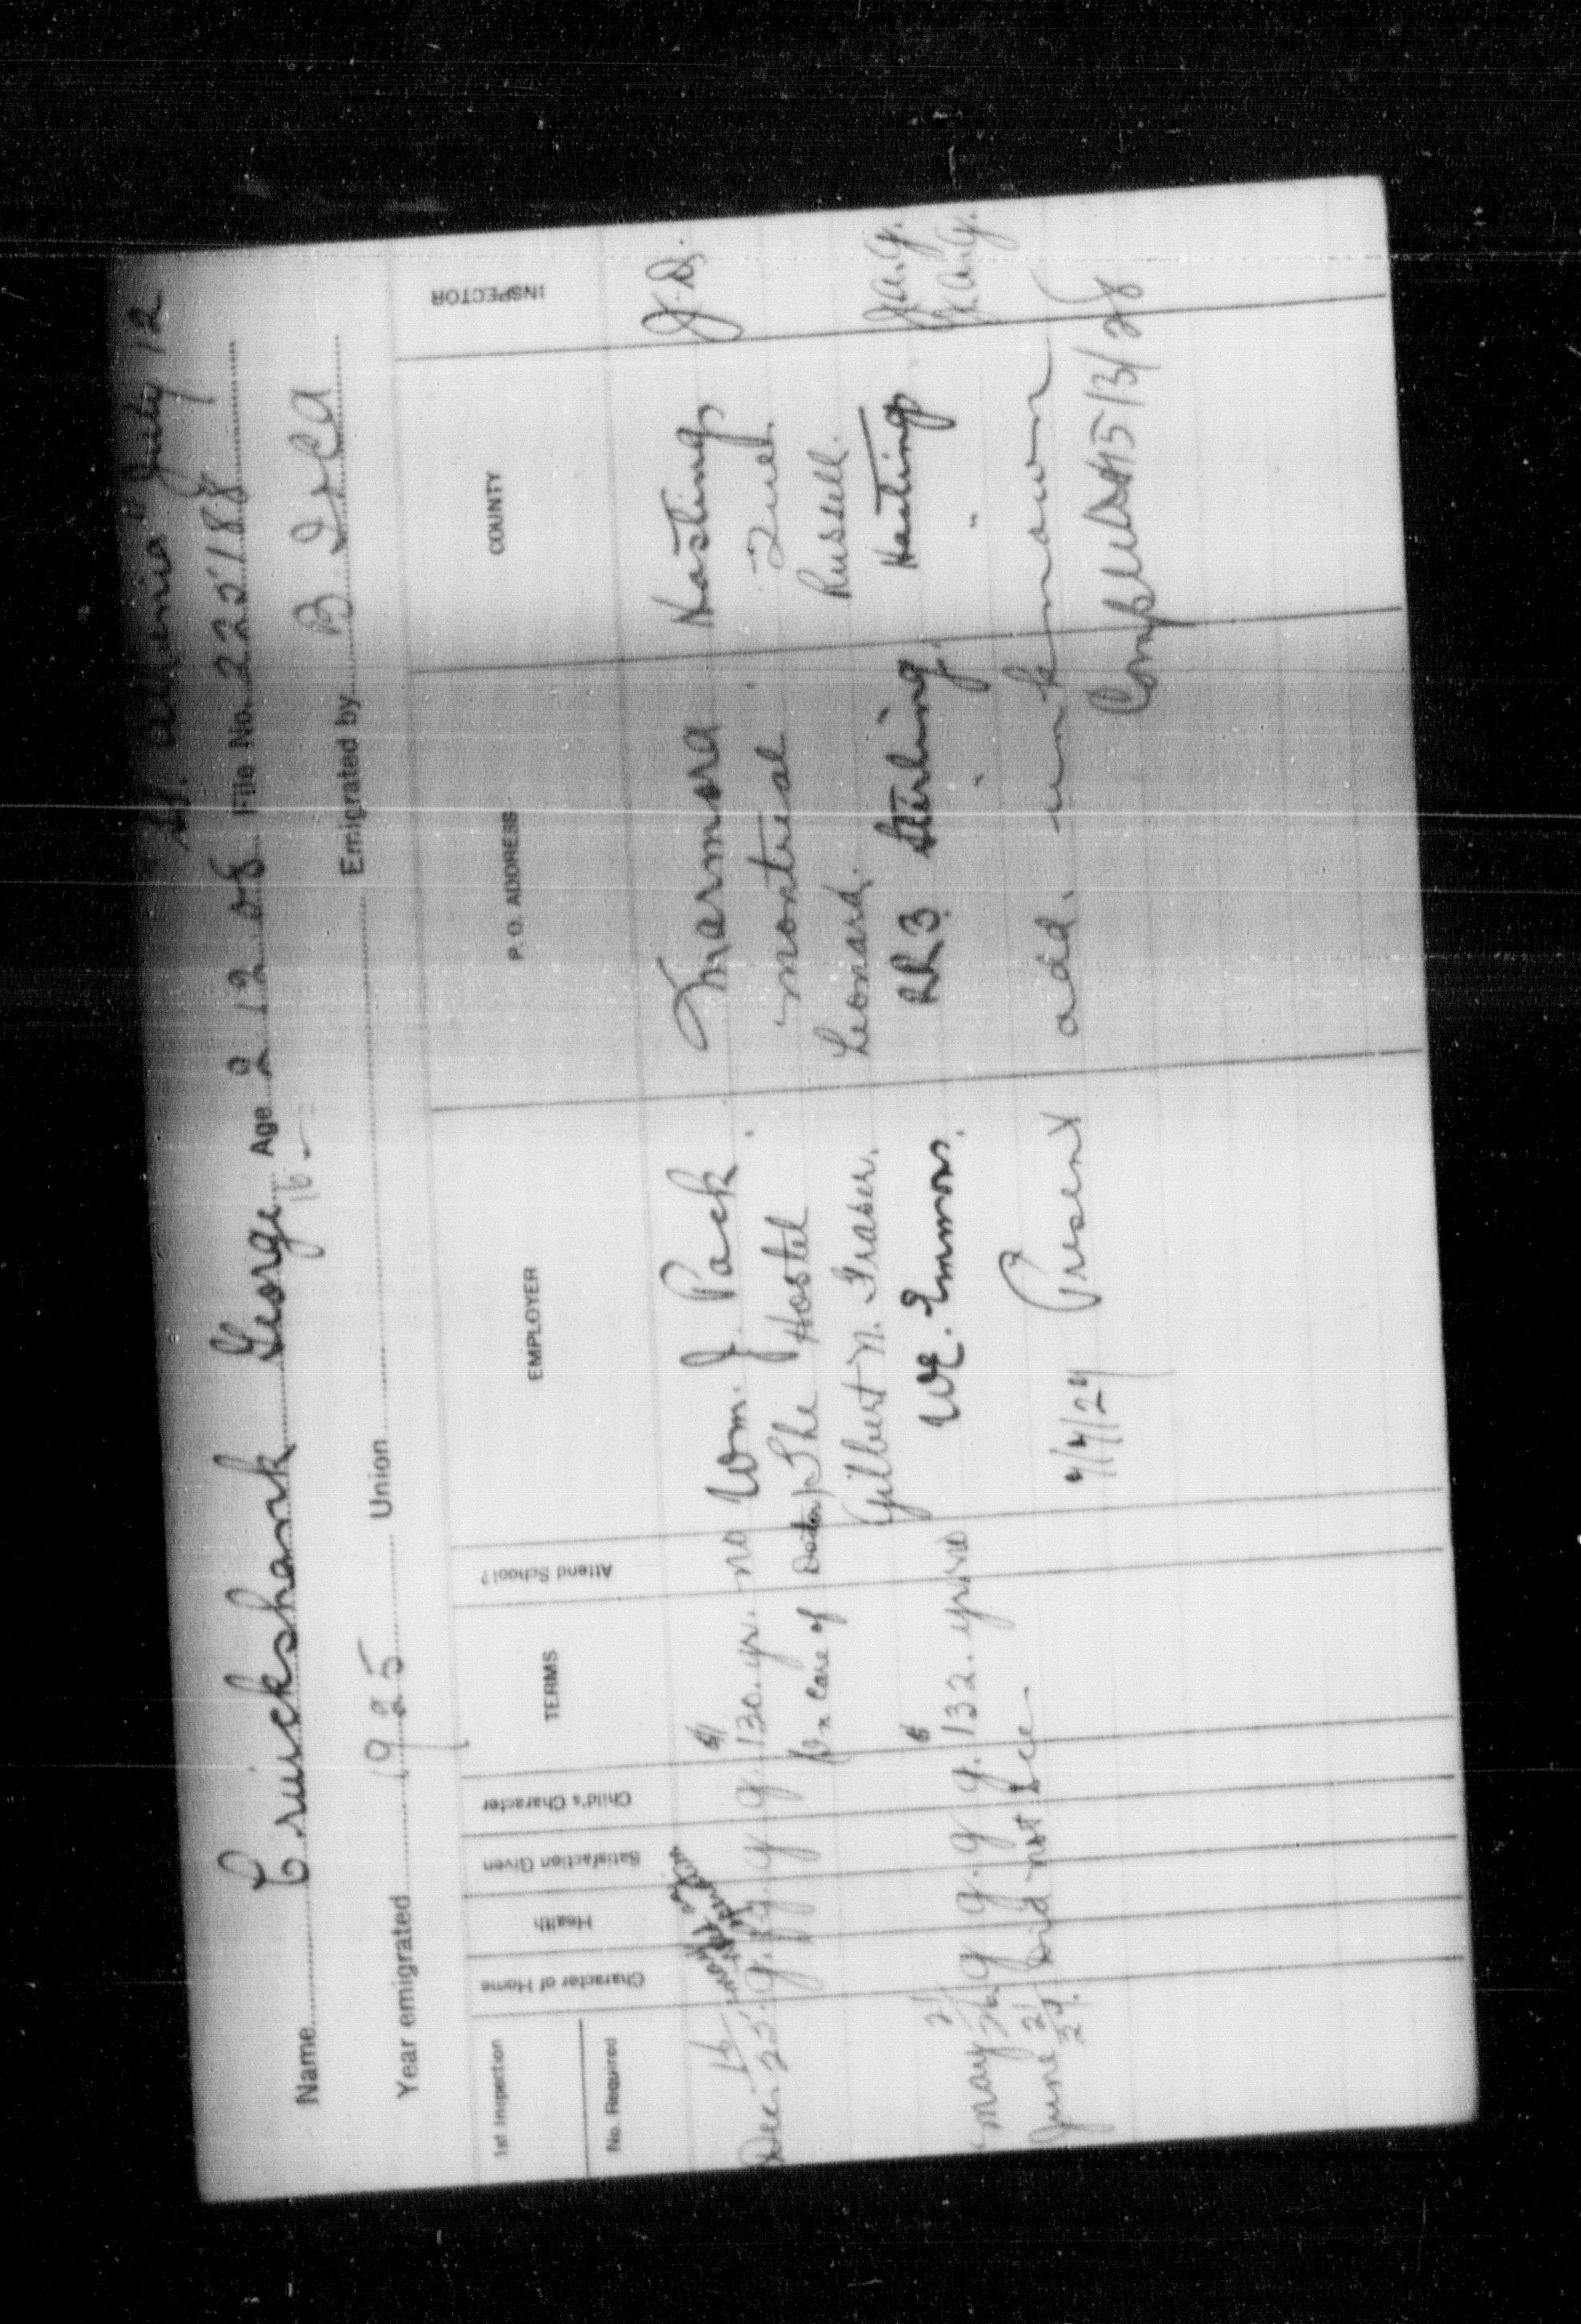 July 12
Name Cruickshank George Age 2 12 08 File No. 225188
16
Year emigrated 1925 Union Emigrated by B I & C A
1st Inspection
No. Required
Character of Home Health Satisfaction Given Child's Character TERMS Attend School? EMPLOYER P. O. ADDRESS COUNTY INSPECTOR
Dec. 16 25. g. g. g g. $130. yr. no Wm. J. Pack. Marmora Hastings J.D.
In care of The Hostel Montreal Quel.
Gilbert N. Fraser. Leonard. Russell.
May 21 26 g g. g g. $132. yr no W.E. Emmons. RR3 Sterling. Hastings J.A.G.
June 21 27. Did not see " " J.A.G.
4/4/27 Present add. unknown
15/3/28